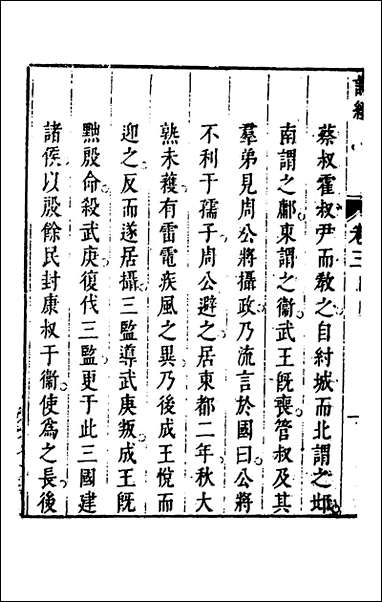 詩經
卷三
蔡叔霍叔尹而敎之自紂城而北謂之邶
南謂之鄘東謂之衞武王旣喪管叔及其
羣弟見周公將攝政乃流言於國曰公將
不利于孺子周公避之居東都二年秋大
熟未穫有雷電疾風之異乃後成王悅而
迎之反而遂居攝三監導武庚叛成王旣
黜殷命殺武庚復伐三監更于此三國建
諸侯以殷餘民封康叔于衞使爲之長後